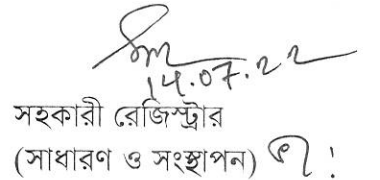 14.07.22
সহকারী রেজিস্ট্রার
(সাধারণ ও সংস্থাপন)